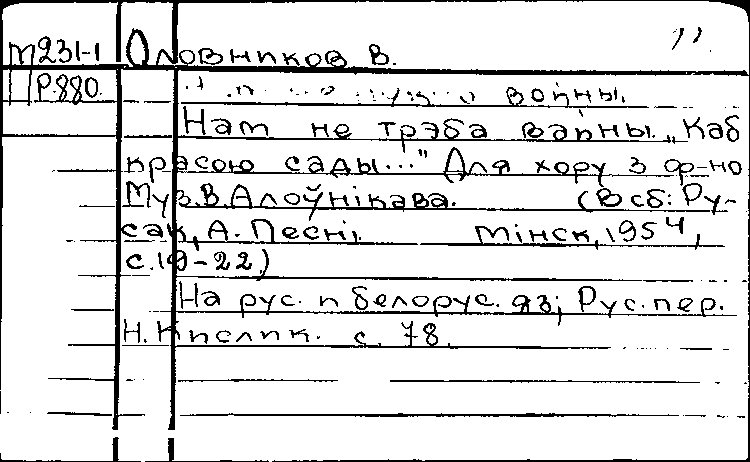 М231-1 Оловников В. 11.
Р.880. войны.
Нам не трэба вайны. „Каб
красою сады..." Для хору з ф-но
Муз. В. Алоўнікава. (В сб: Ру-
сак, А. Песні. Мінск, 1954,
с. 19-22)
На рус. и белорус. яз; Рус. пер.
Н. Кислик. с. 78.